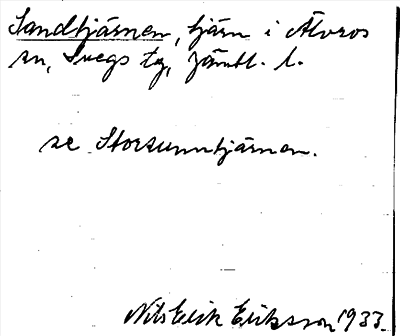 Sandtjärnen, tjärn i Älvros
sn, Svegs tg, Jämtl. l.
se Storsunntjärnen.
Nils Erik Eriksson 1933.